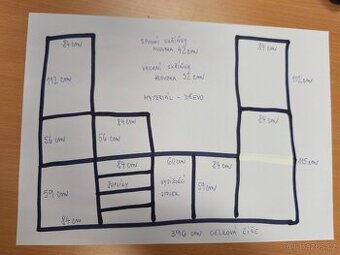 84 cm
SPODNÍ SKŘÍŇKY
HLOUBKA 42 cm
84 cm
VRCHNÍ SKŘÍŇKY
HLOUBKA 32 cm
112 cm
112 cm
MATERIÁL - DŘEVO
84 cm
84 cm
56 cm
56 cm
84 cm
60 cm
84 cm
115 cm
59 cm
ŠUPLÍKY
59 cm
84 cm
396 cm CELKOVÁ ŠÍŘE